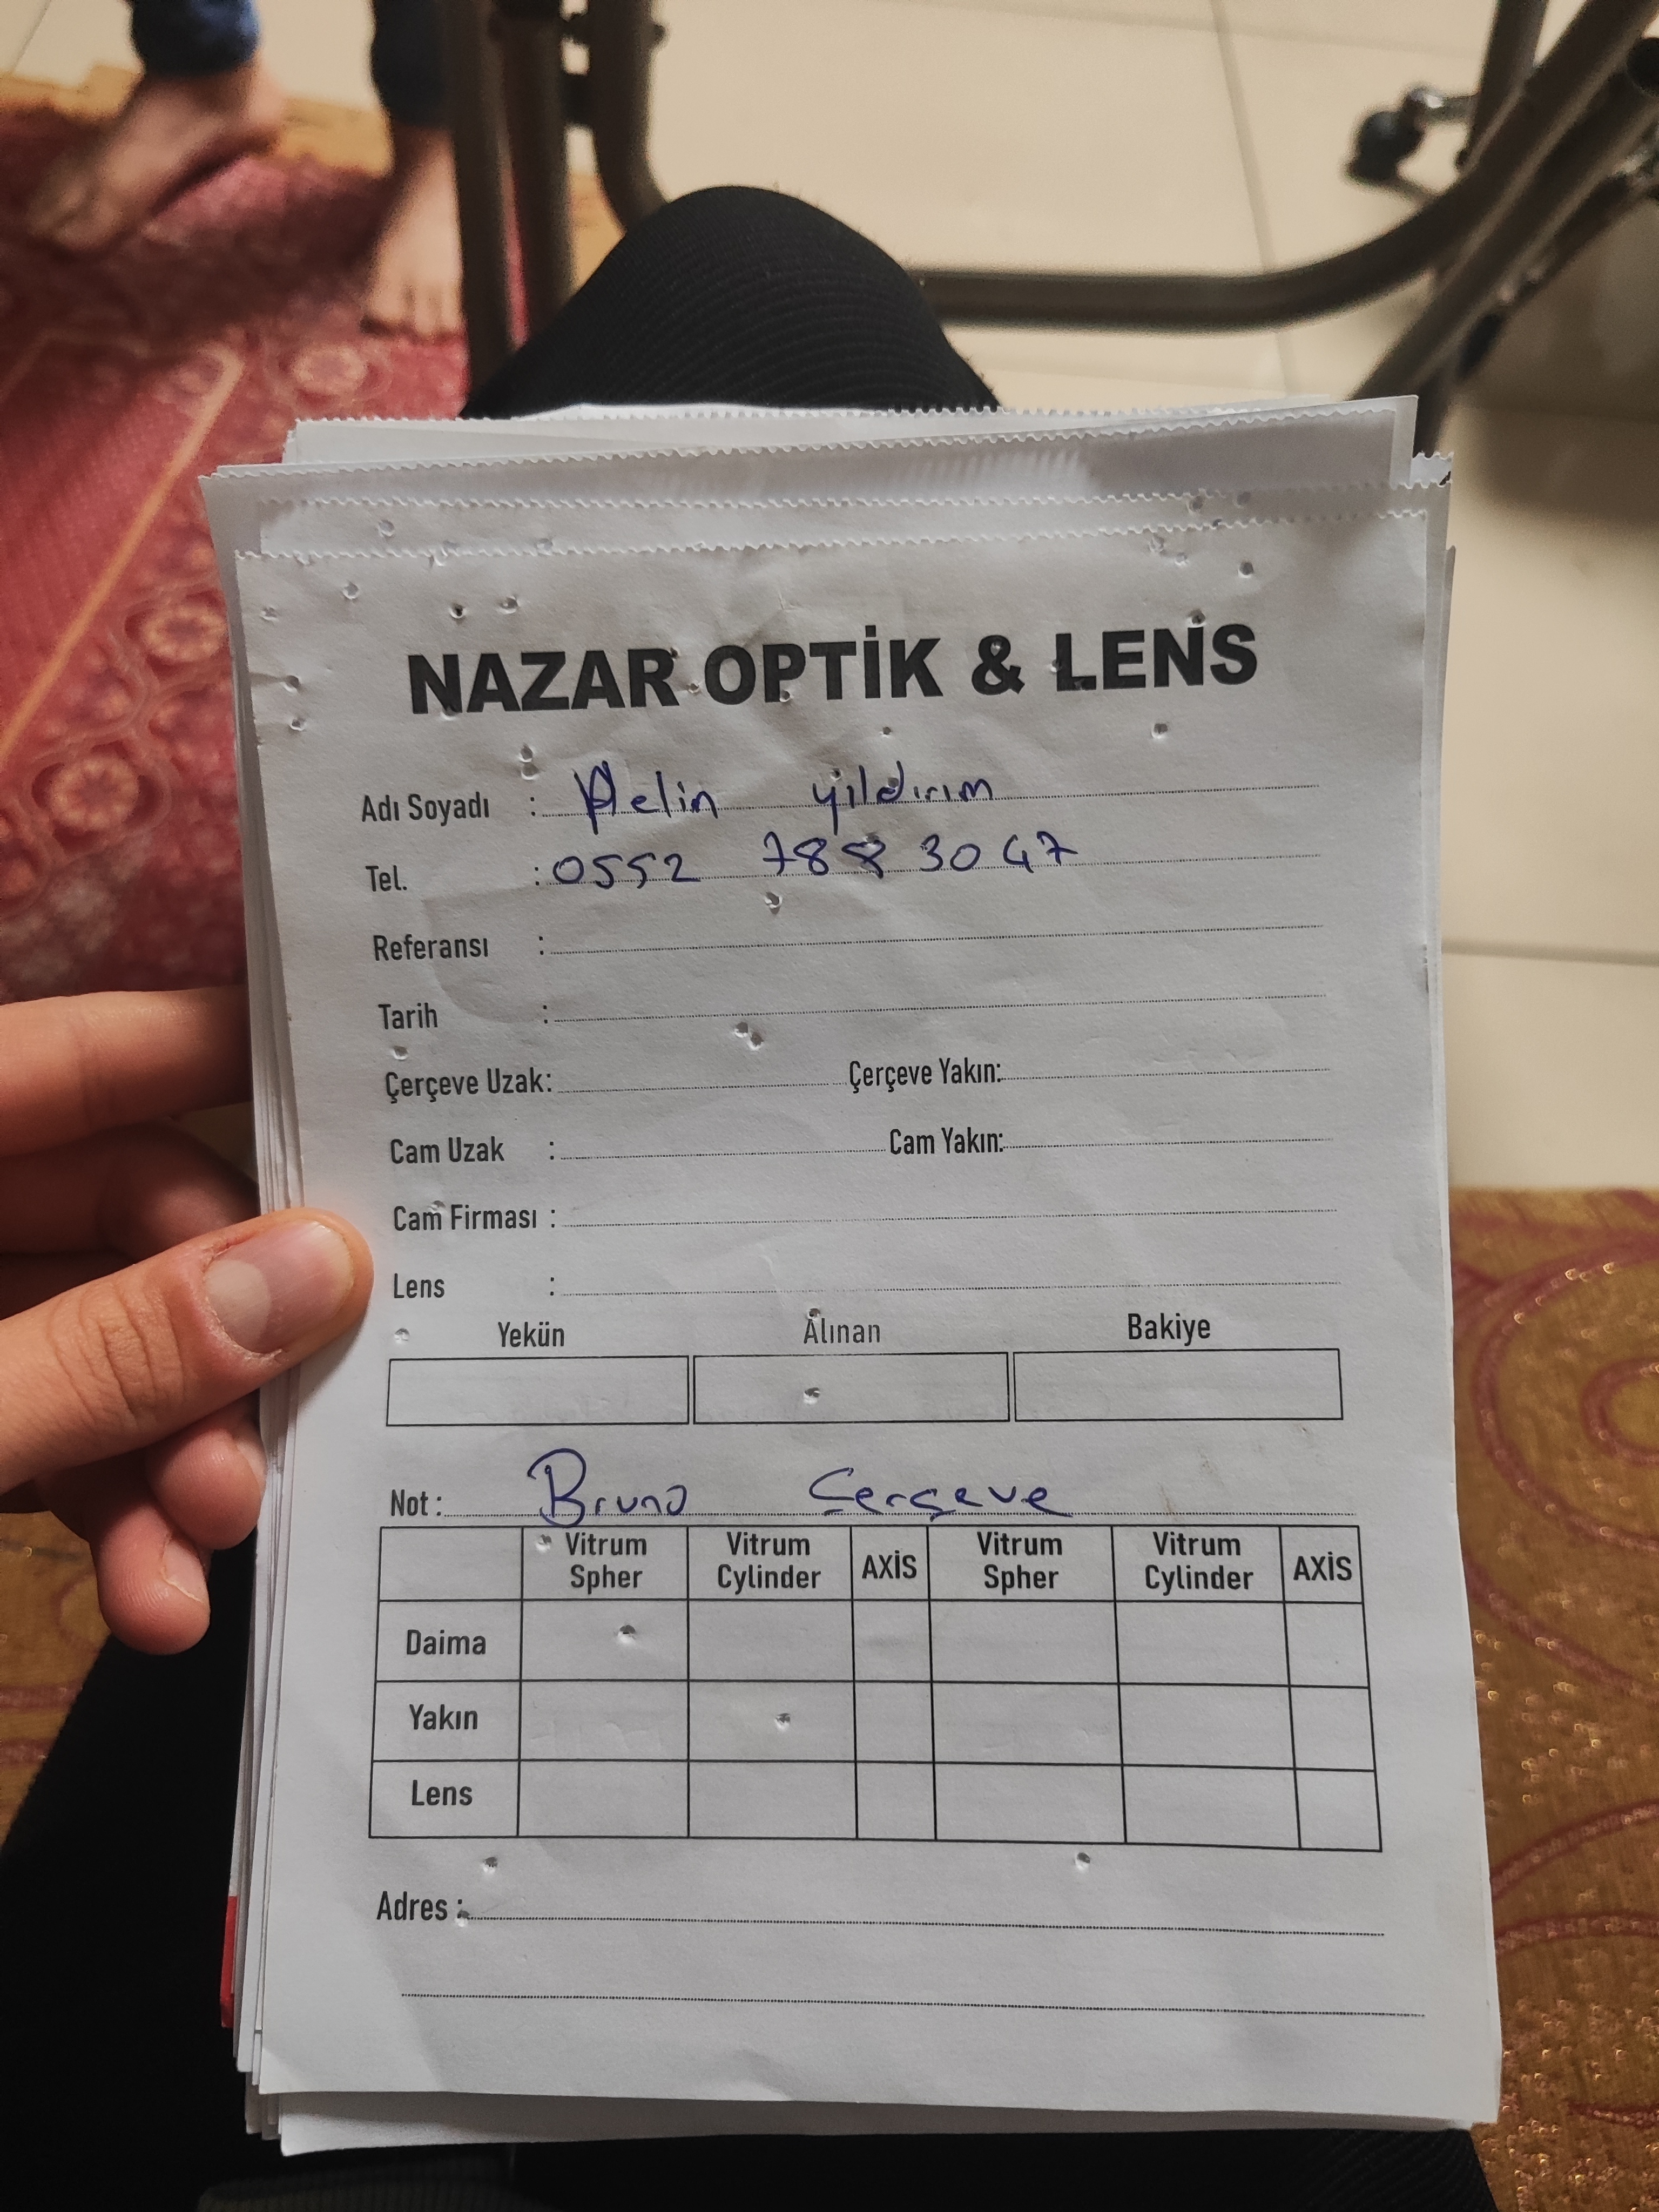 NAZAR OPTİK & LENS
Adı Soyadı : Pelin yildırım
Tel. : 0552 788 30 47
Referansı :
Tarih :
Çerçeve Uzak: Çerçeve Yakın:
Cam Uzak : Cam Yakın:
Cam Firması :
Lens :
Yekün Alınan Bakiye
Not : Bruno Çerçeve
Vitrum Spher Vitrum Cylinder AXİS Vitrum Spher Vitrum Cylinder AXİS
Daima
Yakın
Lens
Adres :